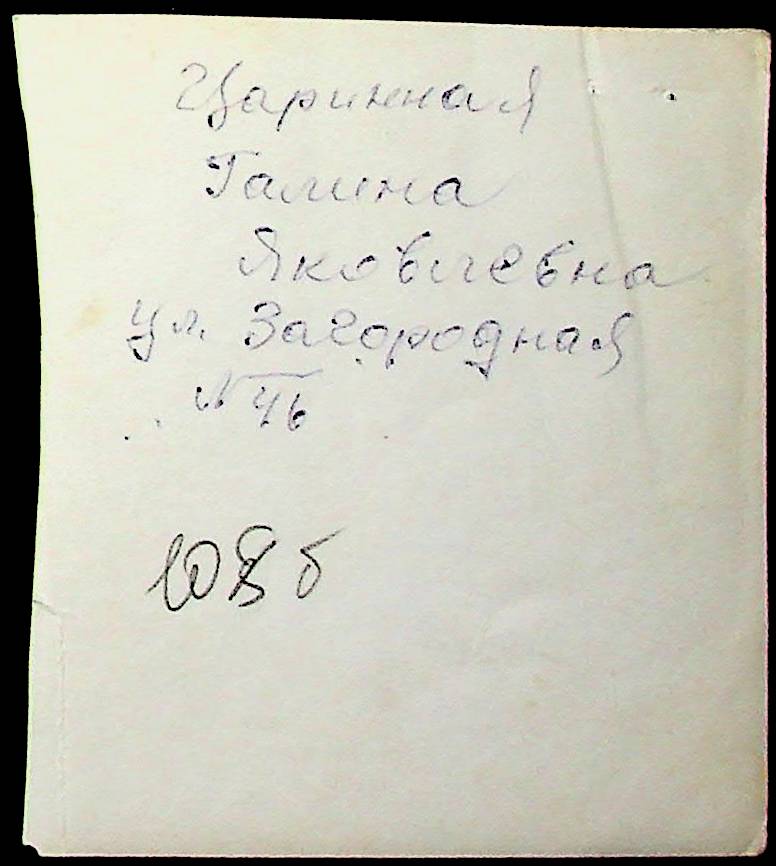 Царинная
Галина
Яковлевна
ул. Загородная
№ 46
108 б